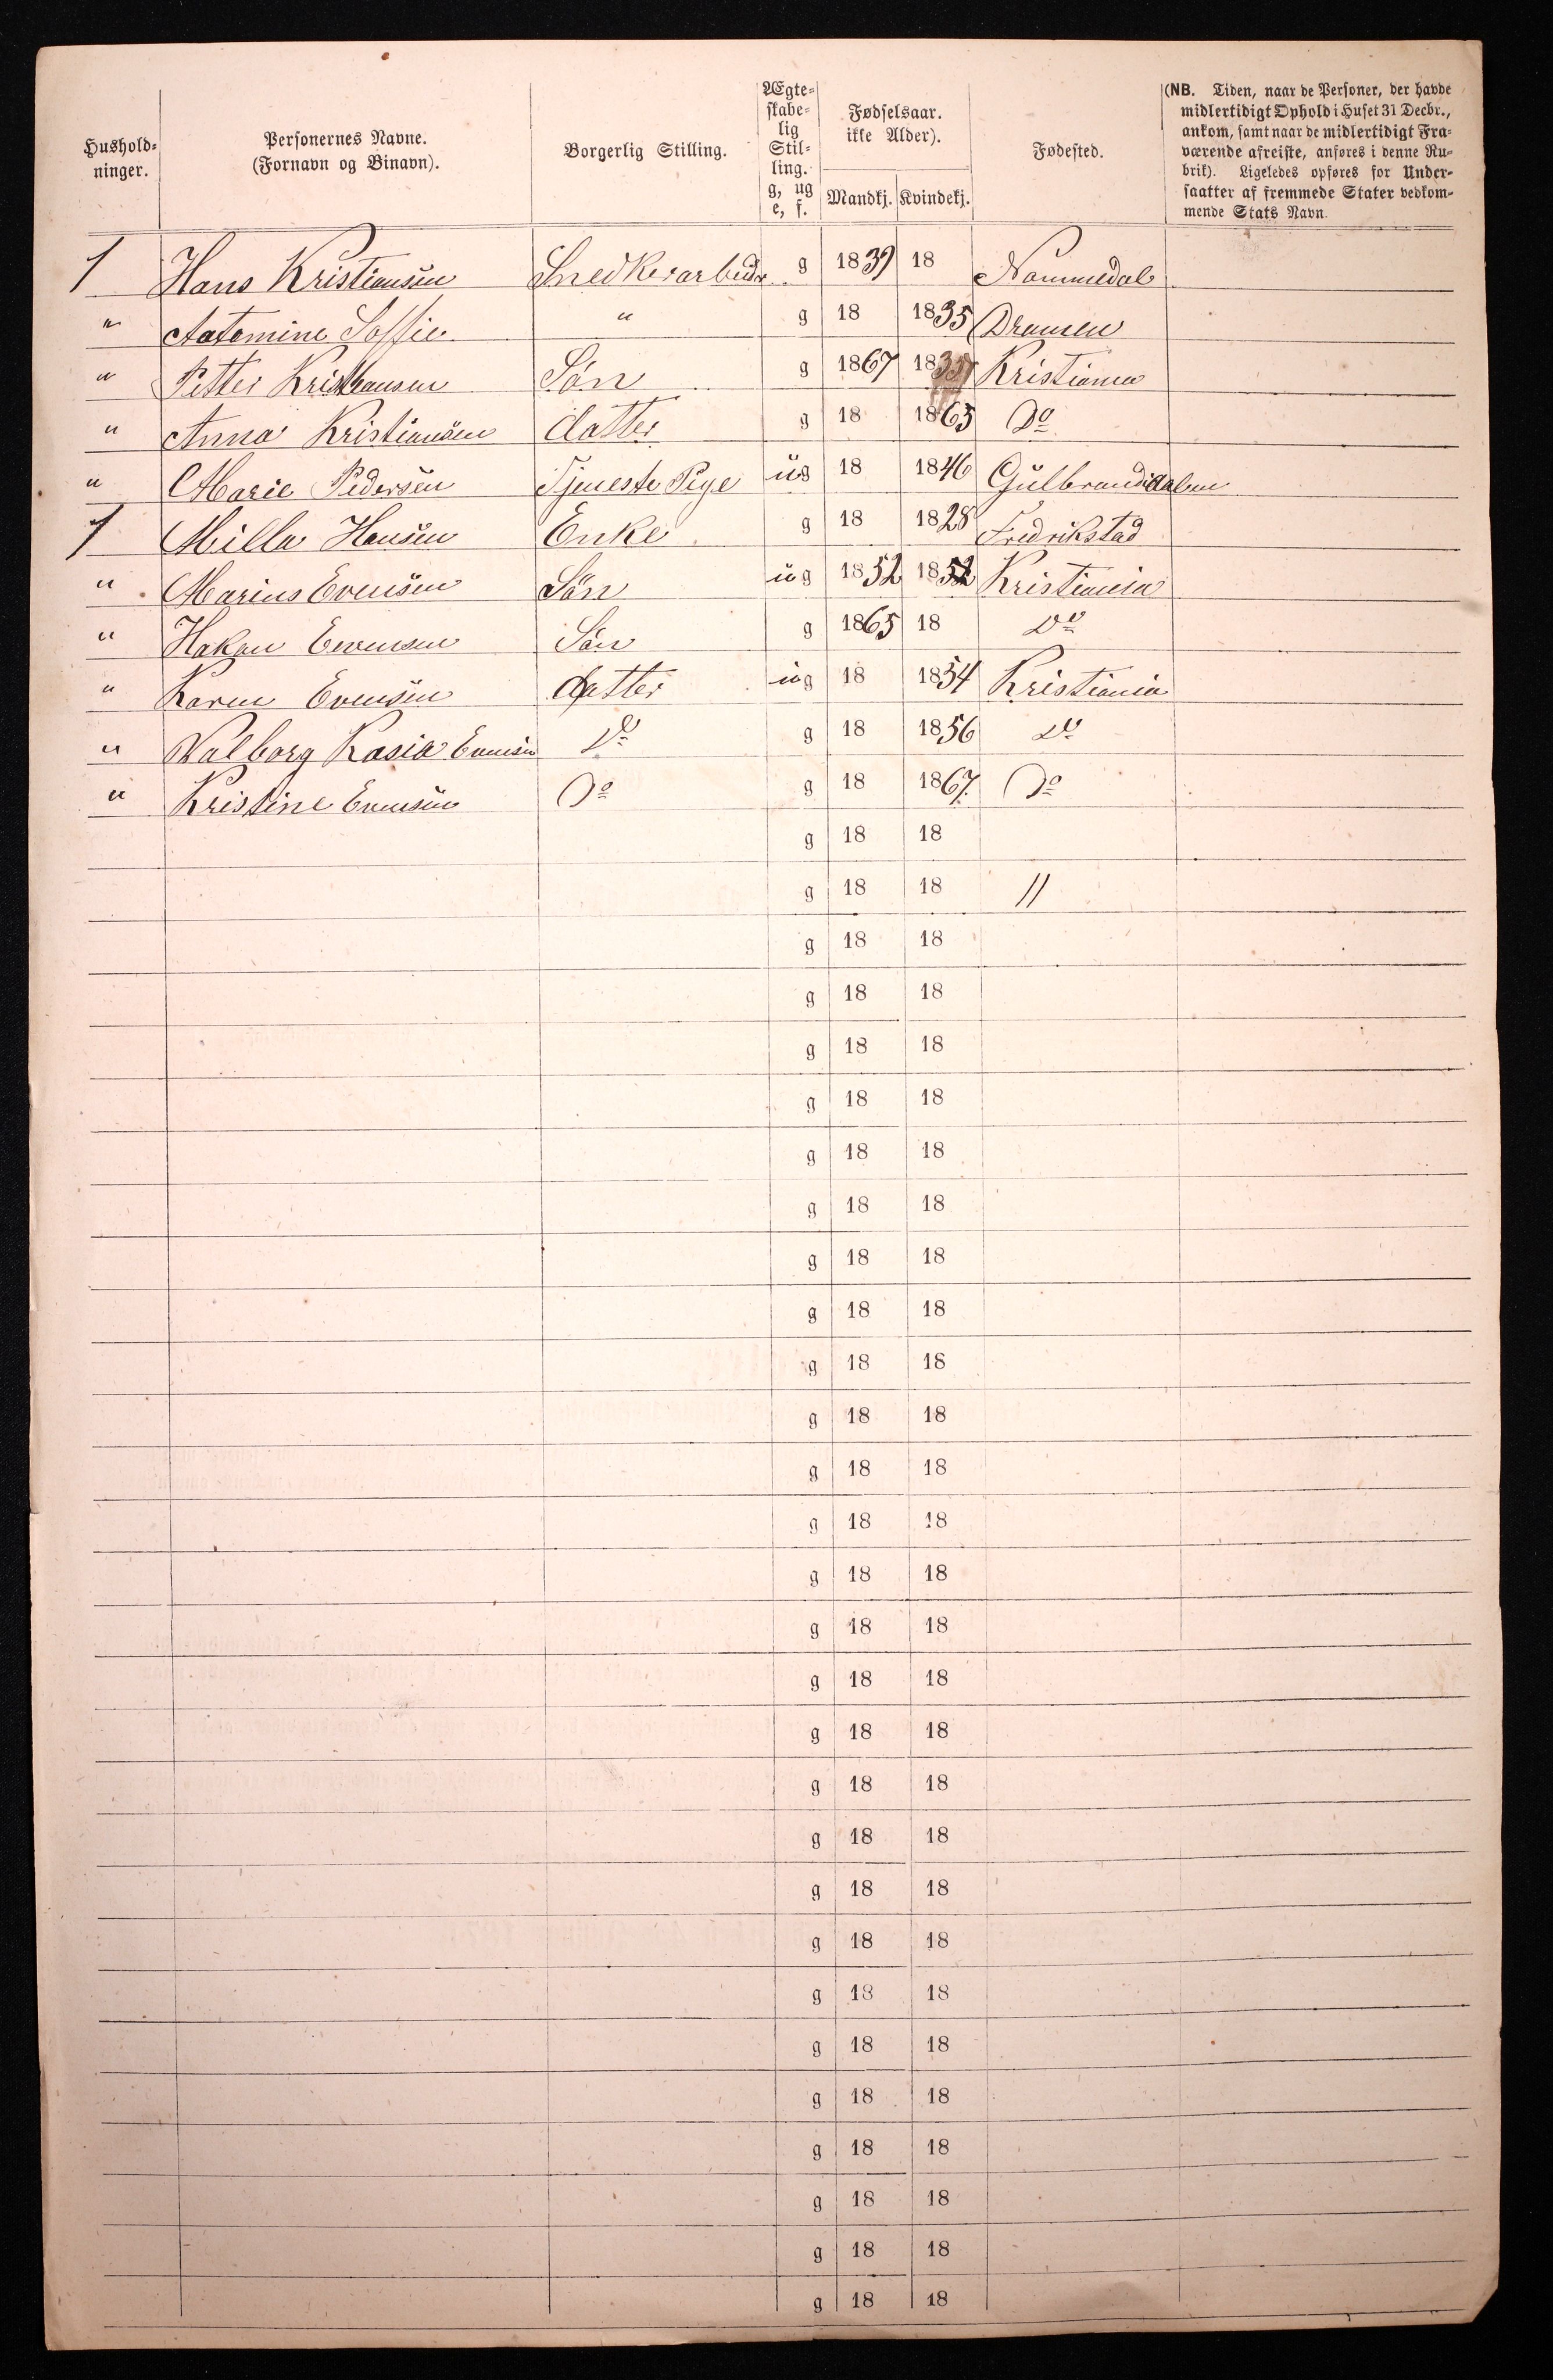 Hushold-
ninger.
Personernes Navne.
(Fornavn og Binavn).
Borgerlig Stilling.
Ægte-
skabe-
lig
Stil-
ling.
g, ug
e, f.
Fødselsaar.
ikke Alder).
Mandkj. Kvindekj.
Fødested.
(NB. Tiden, naar de Personer, der havde
midlertidigt Ophold i Huset 31 Decbr.,
ankom, samt naar de midlertidigt Fra-
værende afreiste, anføres i denne Ru-
brik). Ligeledes opføres for Under-
saatter af fremmede Stater vedkom-
mende Stats Navn.
1 Hans Kristiansen Snedkerarbeider g 1839 18 Nommedal
" Aatomine Soffie " g 18 1835 Dramen
" Petter Kristiansen Sön g 1867 18 Kristiania
" Anna Kristiansen datter g 18 1865 Do
" Marie Pedersen Tjeneste Pige ug 18 1846 Gulbrandsdalen
1 Milla Hansen Enke g 18 1828 Fredrikstad
" Marius Evensen Sön ug 1852 1852 Kristiania
" Hakon Evensen Sön g 1865 18 Do
" Karen Evensen datter ug 18 1854 Kristiania
" Valborg Kasia Evensen Do g 18 1856 Do
" Kristine Evensen Do g 18 1867 Do
g 18 18
g 18 18 11
g 18 18
g 18 18
g 18 18
g 18 18
g 18 18
g 18 18
g 18 18
g 18 18
g 18 18
g 18 18
g 18 18
g 18 18
g 18 18
g 18 18
g 18 18
g 18 18
g 18 18
g 18 18
g 18 18
g 18 18
g 18 18
g 18 18
g 18 18
g 18 18
g 18 18
g 18 18
g 18 18